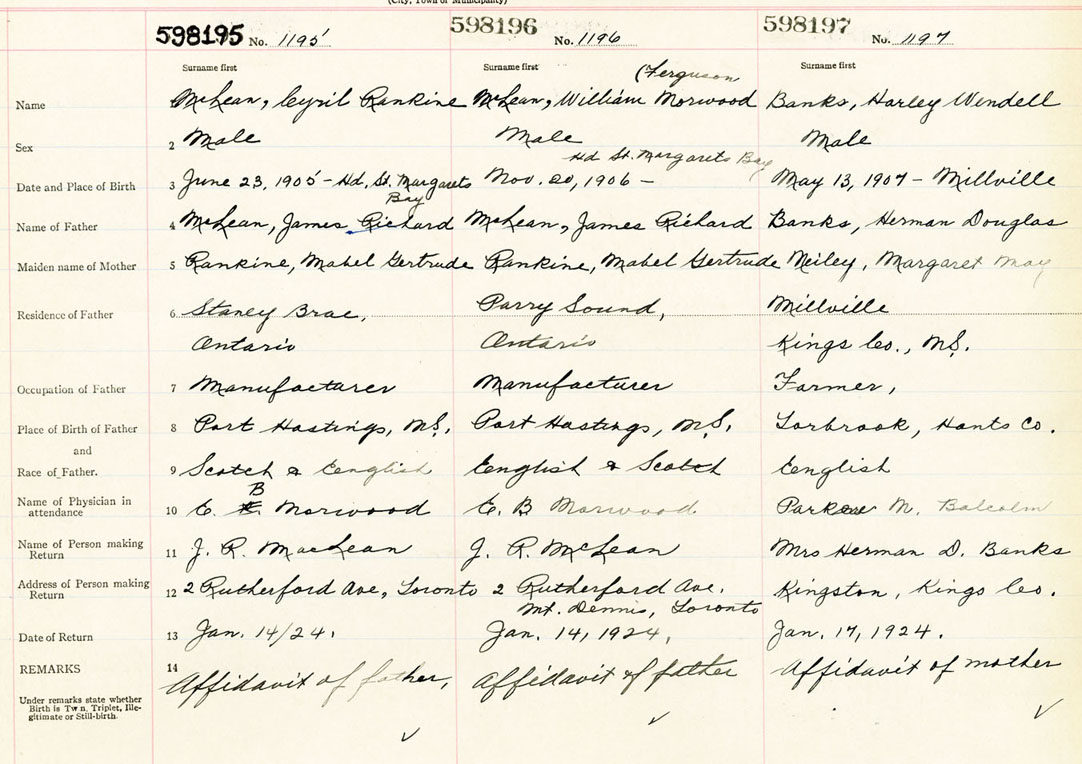 (City, Town or Municipality)
598195 No. 1195 598196 No. 1196 598197 No. 1197
Surname first Surname first (Ferguson Surname first
Name McLean, Cyril Rankine McLean, William Morwood Banks, Harley Wendell
Sex 2 Male Male Male
Hd St. Margarets Bay
Date and Place of Birth 3 June 23, 1905 - Hd. St. Margarets Nov. 20, 1906 - May 13, 1907 - Millville
Bay
Name of Father 4 McLean, James Richard McLean, James Richard Banks, Herman Douglas
Maiden name of Mother 5 Rankine, Mabel Gertrude Rankine, Mabel Gertrude Neiley, Margaret May
Residence of Father 6 Staney Brae, Parry Sound, Millville
Ontario Ontario Kings Co., N.S.
Occupation of Father 7 Manufacturer Manufacturer Farmer,
Place of Birth of Father 8 Port Hastings, N.S. Port Hastings, N.S. Torbrook, Hants Co.
and
Race of Father. 9 Scotch & English English & Scotch English
B
Name of Physician in
attendance 10 C. E. Morwood C. B Morwood. Parker M. Balcolm
Name of Person making
Return 11 J. R. MacLean J. R. McLean Mrs Herman D. Banks
Address of Person making
Return 12 2 Rutherford Ave, Toronto 2 Rutherford Ave. Kingston, Kings Co.
Mt. Dennis, Toronto
Date of Return 13 Jan. 14/24. Jan. 14, 1924, Jan. 17, 1924.
REMARKS 14 Affidavit of father, Affidavit of father Affidavit of mother
Under remarks state whether
Birth is Twin, Triplet, Ille-
gitimate or Still-birth.